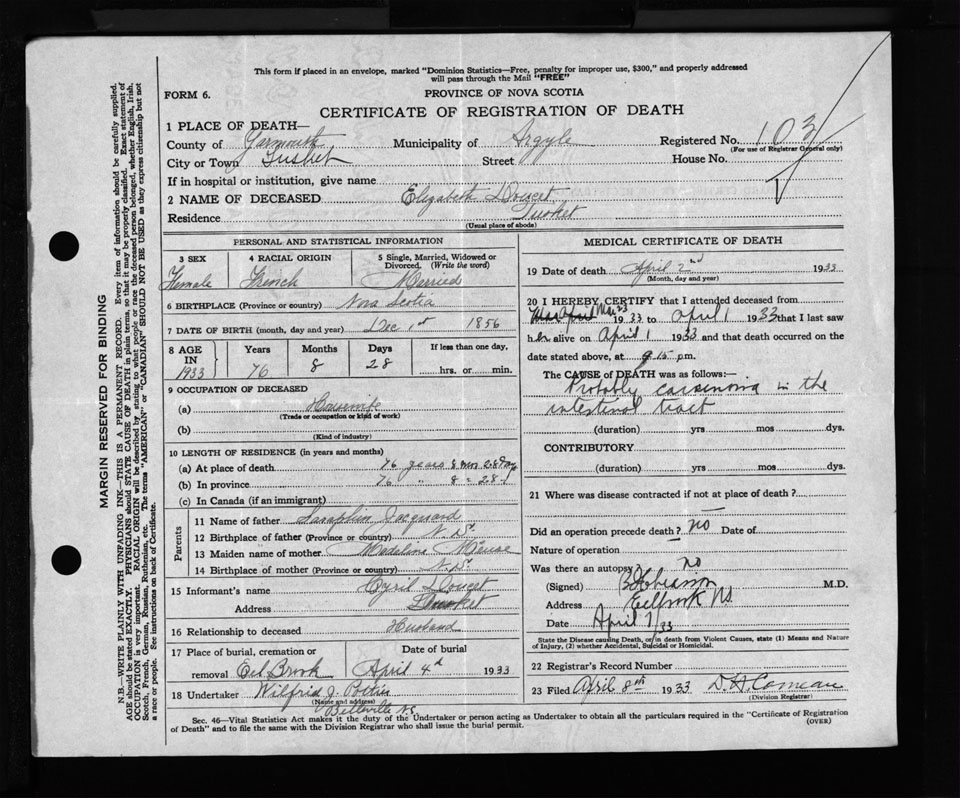 This form if placed in an envelope, marked "Dominion Statistics—Free, penalty for improper use, $300," and properly addressed
will pass through the Mail "FREE"
FORM 6.
PROVINCE OF NOVA SCOTIA
CERTIFICATE OF REGISTRATION OF DEATH
1 PLACE OF DEATH—
County of Yarmouth Municipality of Argyle Registered No. 103
(For use of Registrar General only)
City or Town Tusket Street House No.
If in hospital or institution, give name
2 NAME OF DECEASED Elizabeth Doucet
Residence Tusket
(Usual place of abode)
PERSONAL AND STATISTICAL INFORMATION
3 SEX 4 RACIAL ORIGIN 5 Single, Married, Widowed or
Divorced. (Write the word)
Female French Married
6 BIRTHPLACE (Province or country) Nova Scotia
7 DATE OF BIRTH (month, day and year) Dec 1st 1856
8 AGE Years Months Days If less than one day,
IN
1933 76 8 28 hrs. or min.
9 OCCUPATION OF DECEASED
(a) Housewife
(Trade or occupation or kind of work)
(b)
(Kind of industry)
10 LENGTH OF RESIDENCE (in years and months)
(a) At place of death 76 years 8 mos 28 days
(b) In province 76 " 8 " 28
(c) In Canada (if an immigrant)
Parents
11 Name of father Jacquard
12 Birthplace of father (Province or country) N.S.
13 Maiden name of mother Madeline Meuse
14 Birthplace of mother (Province or country) N.S.
15 Informant's name Cyril Doucet
Address Tusket
16 Relationship to deceased Husband
17 Place of burial, cremation or Date of burial
removal Eel Brook April 4th 1933
18 Undertaker Wilfrid J. Pottier
(Name and address)
Belleville N.S.
MEDICAL CERTIFICATE OF DEATH
19 Date of death April 2nd 1933
(Month, day and year)
20 I HEREBY CERTIFY that I attended deceased from
Mar 23 1933 to April 1 1933 that I last saw
her alive on April 1 1933 and that death occurred on the
date stated above, at 9.15 pm.
The CAUSE of DEATH was as follows:—
Probably carsenoma in the
intestinal tract
(duration) yrs mos dys.
CONTRIBUTORY
(duration) yrs mos dys.
21 Where was disease contracted if not at place of death?
Did an operation precede death? no Date of
Nature of operation
Was there an autopsy? no
(Signed) M.D.
Address Eelbrook NS
Date April 7/33
State the Disease causing Death, or in death from Violent Causes, state (1) Means and Nature
of Injury, (2) whether Accidental, Suicidal or Homicidal.
22 Registrar's Record Number
23 Filed April 8th 1933 D.H. Comeau
(Division Registrar)
Sec. 46—Vital Statistics Act makes it the duty of the Undertaker or person acting as Undertaker to obtain all the particulars required in the "Certificate of Registration
of Death" and to file the same with the Division Registrar who shall issue the burial permit.
(OVER)
MARGIN RESERVED FOR BINDING
N.B.—WRITE PLAINLY WITH UNFADING INK—THIS IS A PERMANENT RECORD. Every item of information should be carefully supplied.
AGE should be stated EXACTLY. PHYSICIANS should STATE CAUSE OF DEATH in plain terms, so that it may be properly classified. Exact statement of
OCCUPATION is very important. RACIAL ORIGIN will be described by stating to what people or race the deceased person belonged, whether English, Irish,
Scotch, French, German, Russian, Ruthenian, etc. The terms "AMERICAN" or "CANADIAN" SHOULD NOT BE USED as they express citizenship but not
a race or people. See instructions on back of Certificate.